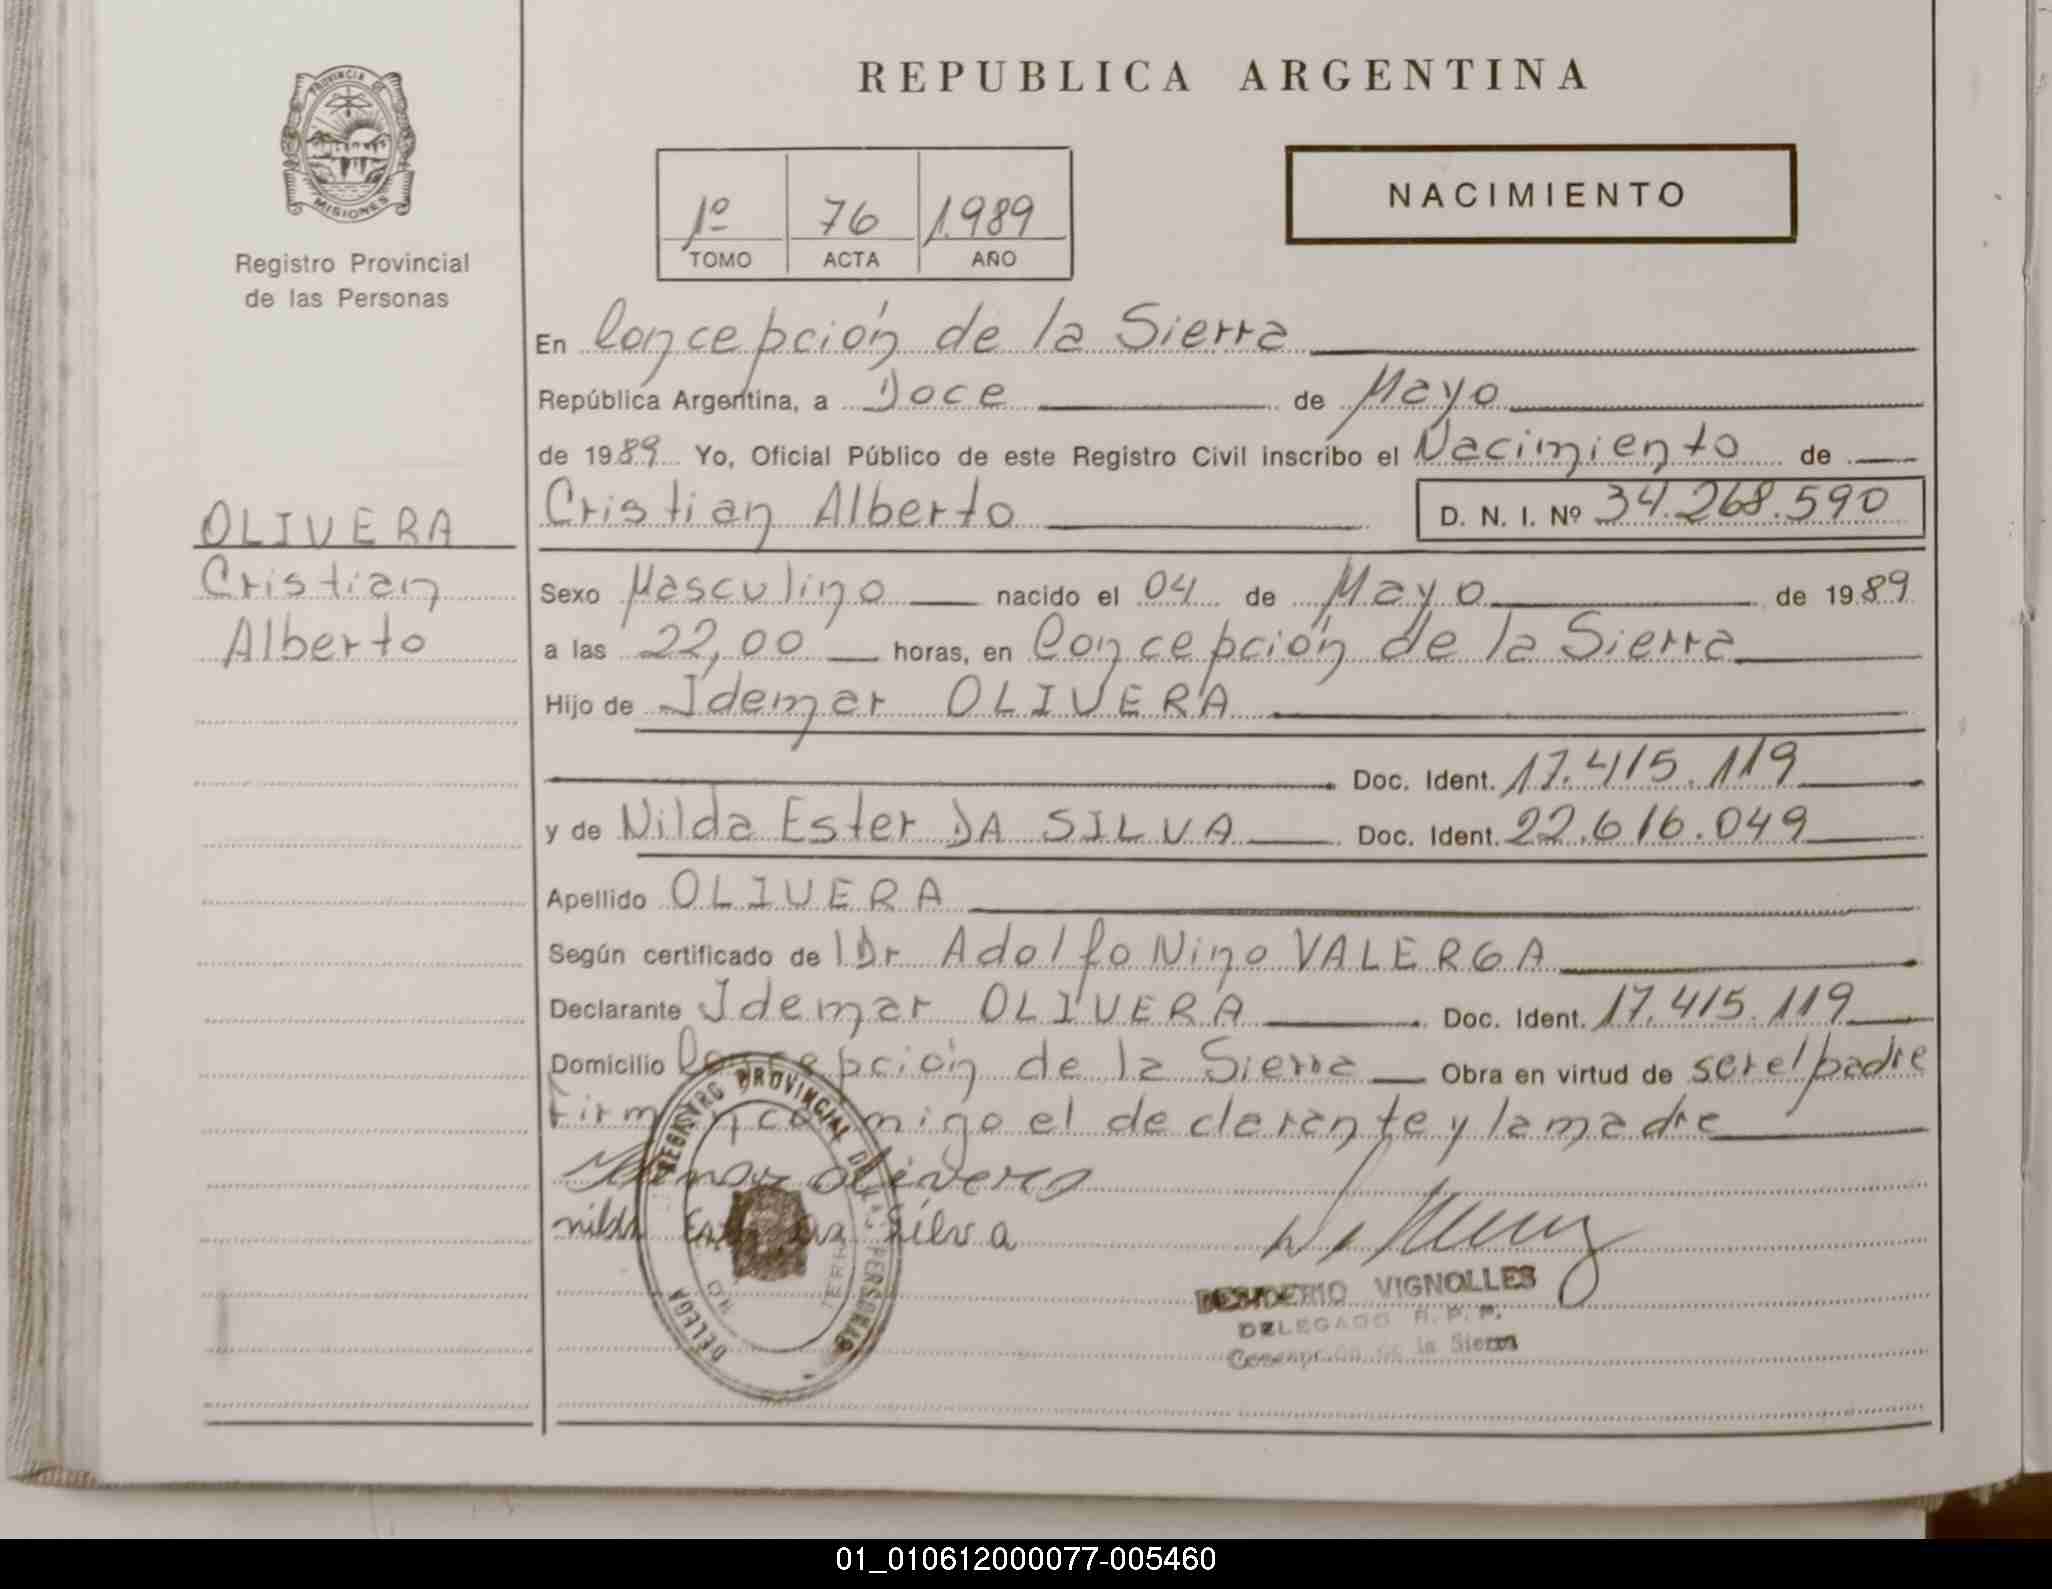 REPUBLICA ARGENTINA
PROVINCIA DE
MISIONES
Registro Provincial
de las Personas
NACIMIENTO
1º 76 1.989
TOMO ACTA AÑO
En Concepción de la Sierra
República Argentina, a Doce de Mayo
de 1989 Yo, Oficial Público de este Registro Civil inscribo el Nacimiento de
Cristian Alberto D. N. I. Nº 34.268.590
OLIVERA
Cristian
Alberto
Sexo Masculino nacido el 04 de Mayo de 1989
a las 22,00 horas, en Concepción de la Sierra
Hijo de Idemar OLIVERA
Doc. Ident. 17.415.119
y de Nilda Ester DA SILVA Doc. Ident. 22.616.049
Apellido OLIVERA
Según certificado de l Dr Adolfo Nino VALERGA
Declarante Idemar OLIVERA Doc. Ident. 17.415.119
Domicilio Concepción de la Sierra Obra en virtud de ser el padre
Firman conmigo el declarante y la madre
Idemar Olivera
nilda Ester da silva
REGISTRO PROVINCIAL DE LAS PERSONAS
DELEGA
DESIDERIO VIGNOLLES
DELEGADO R. P. P.
Concepción de la Sierra
01_010612000077-005460